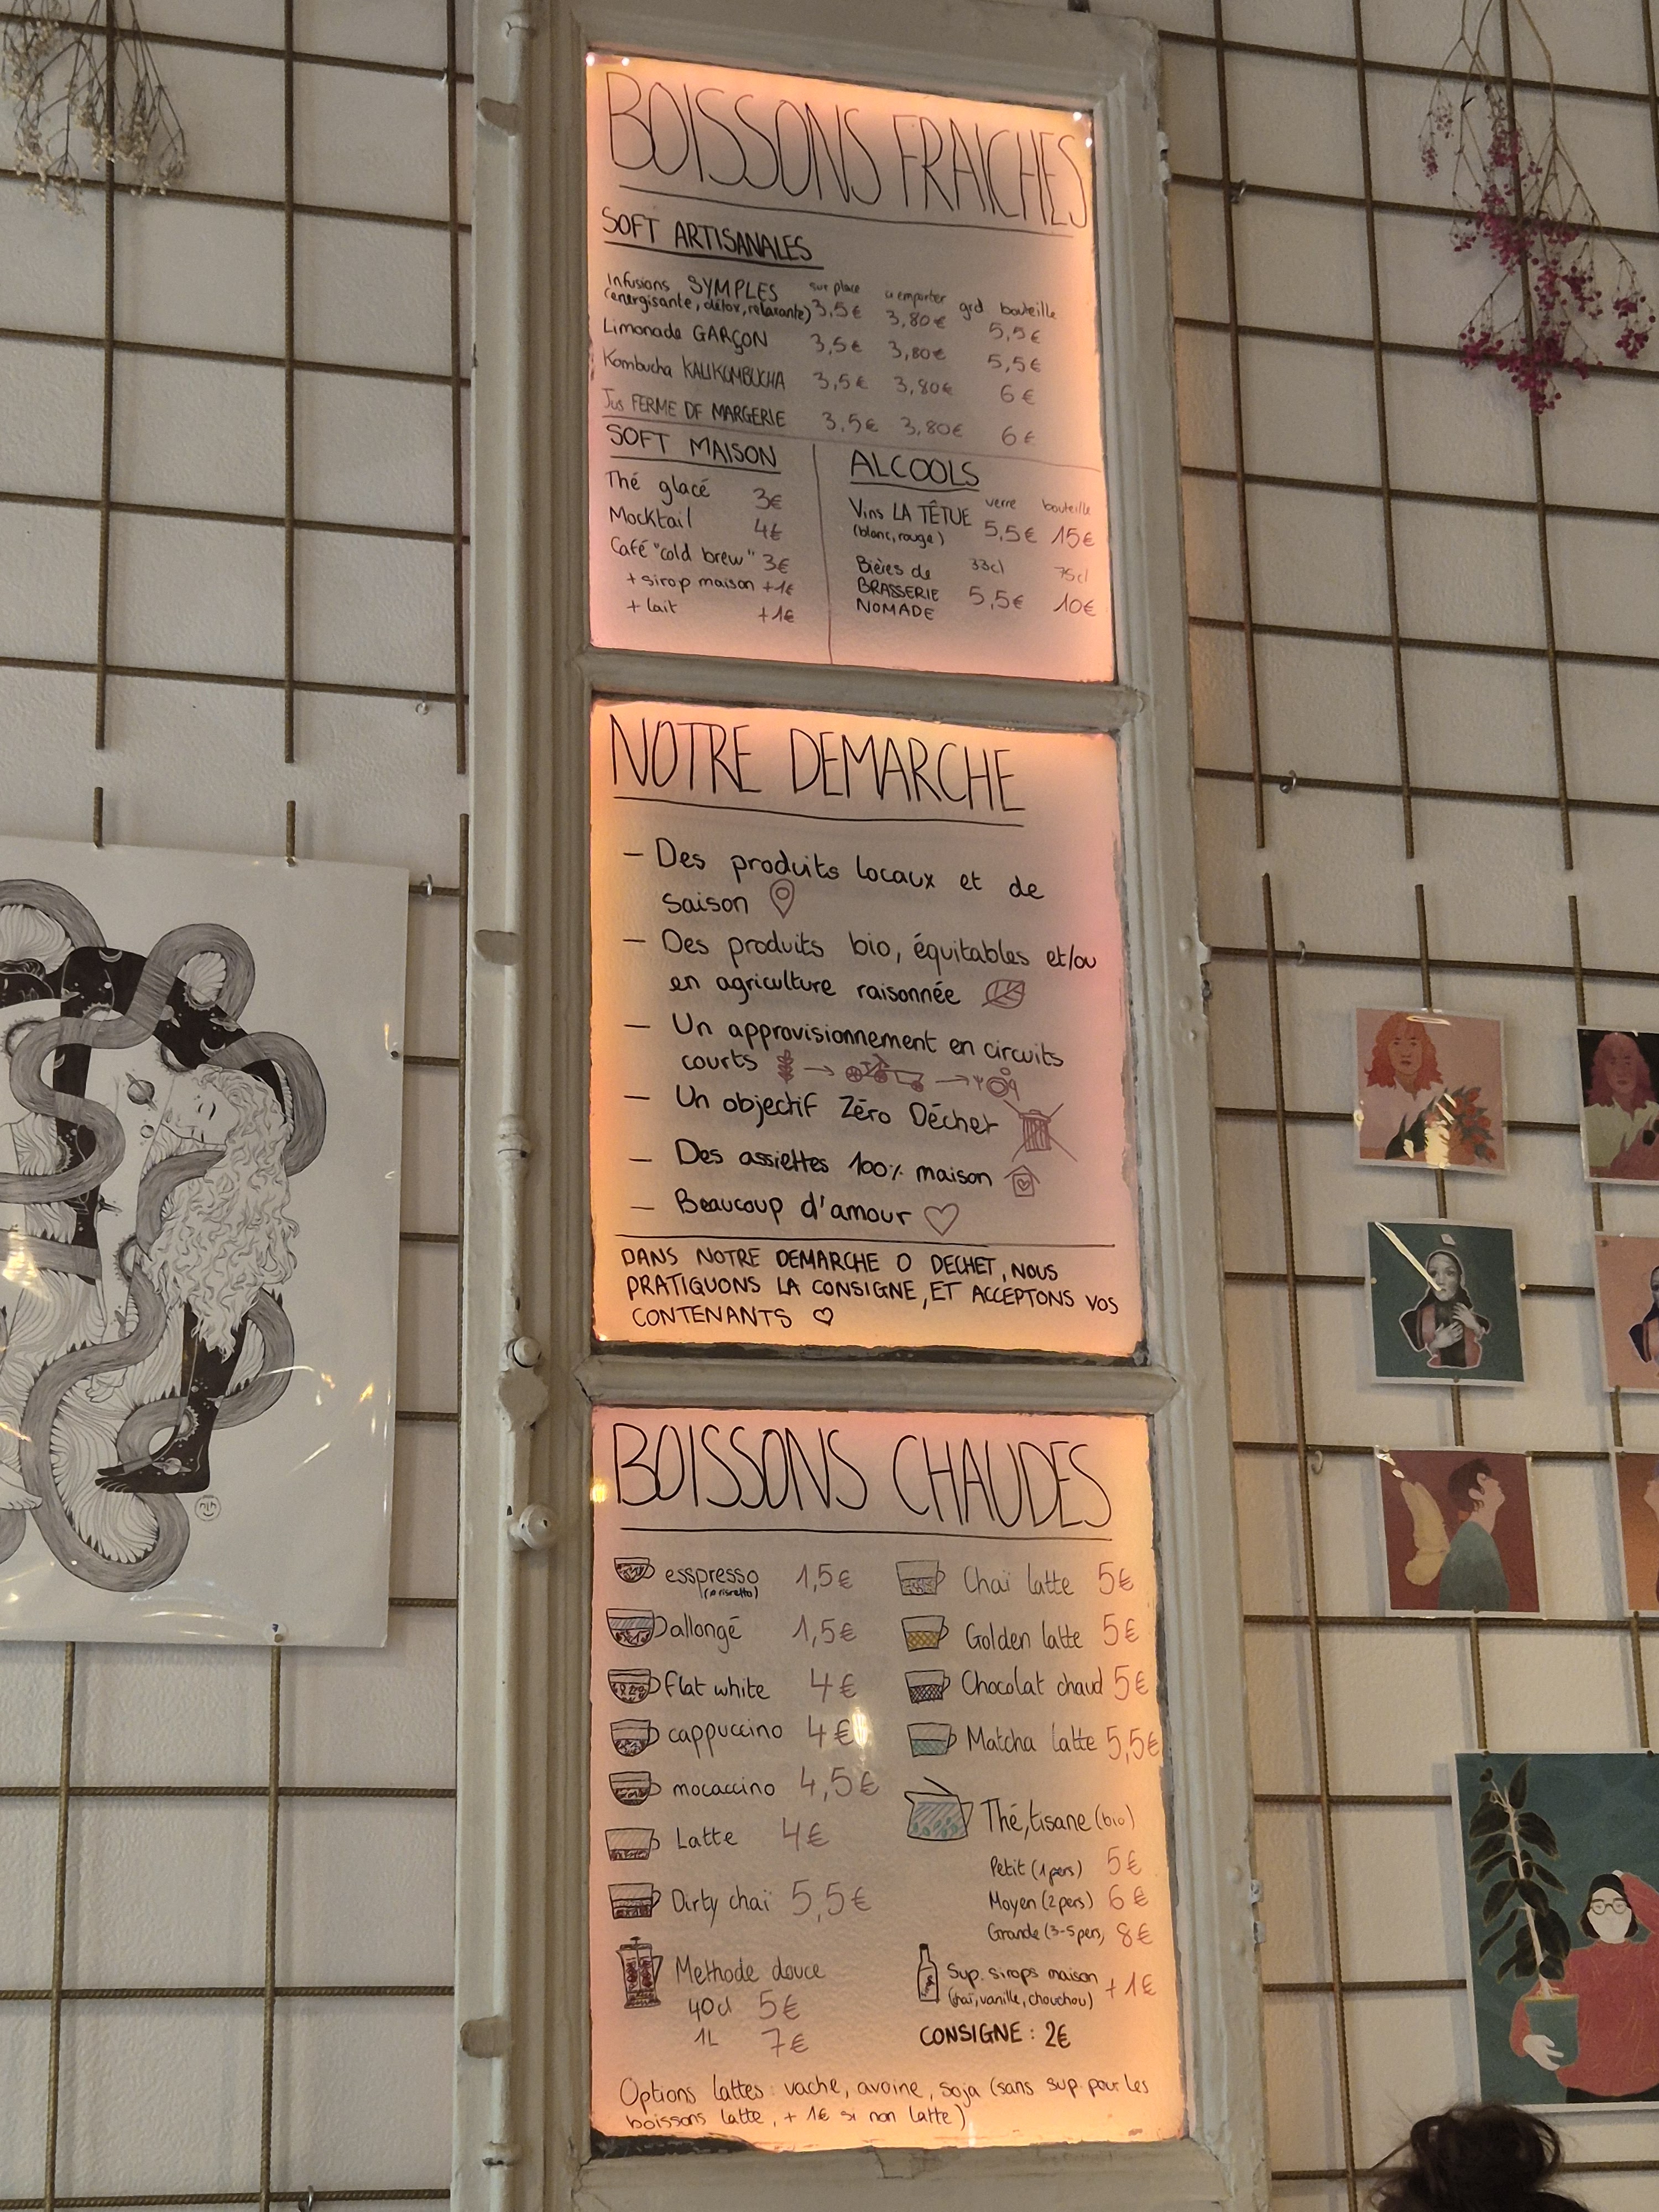 BOISSONS FRAICHES
SOFT ARTISANALES
sur place à emporter grd bouteille
Infusions SYMPLES
(énergisante, détox, relaxante) 3,5€ 3,80€ 5,5€
Limonade GARÇON 3,5€ 3,80€ 5,5€
Kombucha KALIKOMBUCHA 3,5€ 3,80€ 6€
Jus FERME DE MARGERIE 3,5€ 3,80€ 6€
SOFT MAISON
Thé glacé 3€
Mocktail 4€
Café "cold brew" 3€
+ sirop maison +1€
+ lait +1€
ALCOOLS
verre bouteille
Vins LA TÊTUE 5,5€ 15€
(blanc, rouge)
Bières de 33cl 75cl
BRASSERIE 5,5€ 10€
NOMADE
NOTRE DEMARCHE
— Des produits locaux et de
saison
— Des produits bio, équitables et/ou
en agriculture raisonnée
— Un approvisionnement en circuits
courts
— Un objectif Zéro Déchet
— Des assiettes 100% maison
— Beaucoup d'amour ♡
DANS NOTRE DEMARCHE O DECHET, NOUS
PRATIQUONS LA CONSIGNE, ET ACCEPTONS VOS
CONTENANTS ♡
BOISSONS CHAUDES
esspresso 1,5€
allongé 1,5€
flat white 4€
cappuccino 4€
mocaccino 4,5€
Latte 4€
Dirty chaï 5,5€
Methode douce
40cl 5€
1L 7€
Chaï latte 5€
Golden latte 5€
Chocolat chaud 5€
Matcha latte 5,5€
Thé, tisane (bio)
Petit (1pers) 5€
Moyen (2pers) 6€
Grande (3-5pers) 8€
Sup. sirops maison + 1€
(chaï, vanille, chouchou)
CONSIGNE : 2€
Options lattes : vache, avoine, soja (sans sup. pour les
boissons latte, + 1€ si non latte)